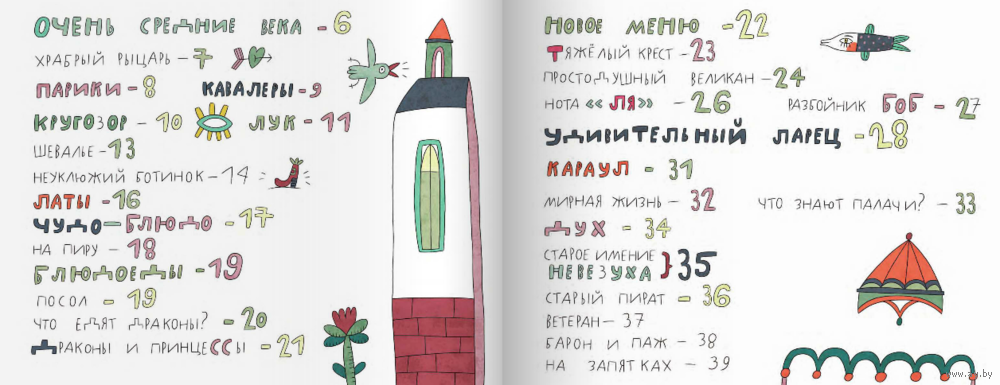 ОЧЕНЬ СРЕДНИЕ ВЕКА - 6
ХРАБРЫЙ РЫЦАРЬ - 7
ПАРИКИ - 8 КАВАЛЕРЫ - 9
КРУГОЗОР - 10 ЛУК - 11
ШЕВАЛЬЕ - 13
НЕУКЛЮЖИЙ БОТИНОК - 14
ЛАТЫ - 16
ЧУДО-БЛЮДО - 17
НА ПИРУ - 18
БЛЮДОЕДЫ - 19
ПОСОЛ - 19
ЧТО ЕДЯТ ДРАКОНЫ? - 20
ДРАКОНЫ И ПРИНЦЕССЫ - 21
НОВОЕ МЕНЮ - 22
ТЯЖЁЛЫЙ КРЕСТ - 23
ПРОСТОДУШНЫЙ ВЕЛИКАН - 24
НОТА «ЛЯ» - 26 РАЗБОЙНИК БОБ - 27
УДИВИТЕЛЬНЫЙ ЛАРЕЦ - 28
КАРАУЛ - 31
МИРНАЯ ЖИЗНЬ - 32 ЧТО ЗНАЮТ ПАЛАЧИ? - 33
ДУХ - 34
СТАРОЕ ИМЕНИЕ
НЕВЕЗУХА } 35
СТАРЫЙ ПИРАТ - 36
ВЕТЕРАН - 37
БАРОН И ПАЖ - 38
НА ЗАПЯТКАХ - 39